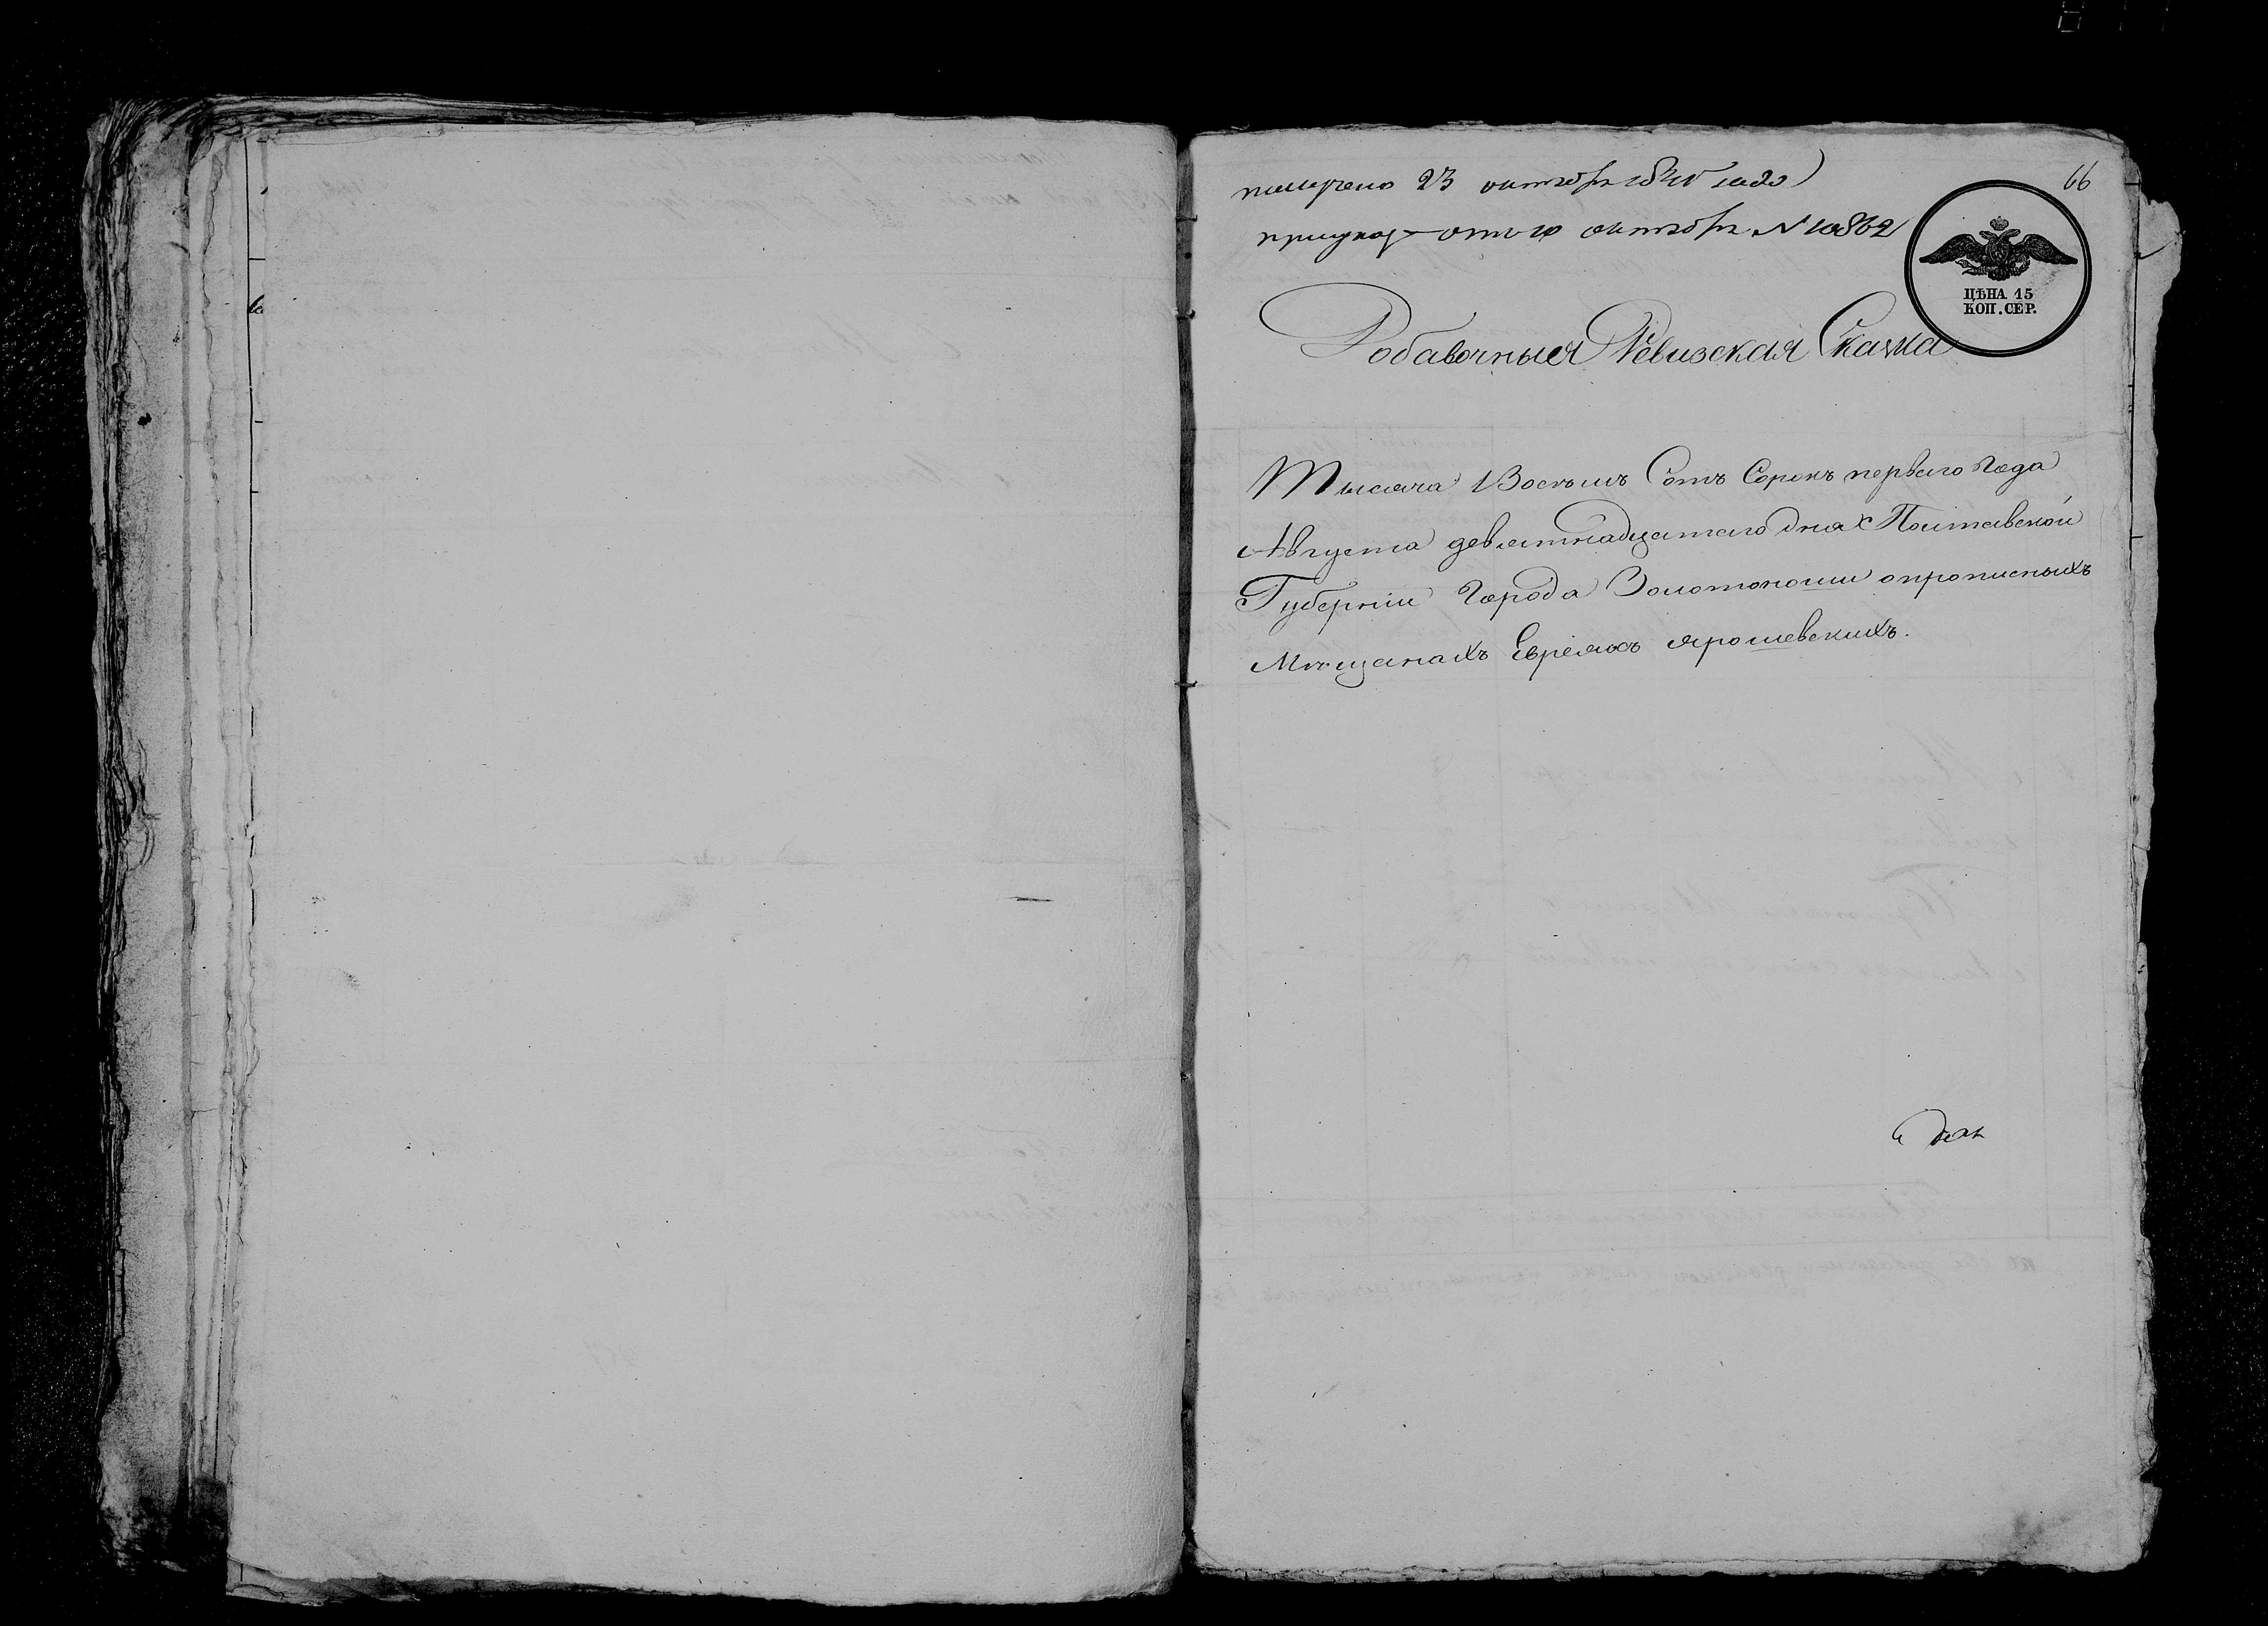 66
получено 23 октября 1841 года
при указе отъ 10 октября № 10862
ЦѢНА 15
КОП. СЕР.
Добавочныя Ревизская Скаска
Тысяча Восемь Сотъ Сорокъ перваго Года
Августа девятнадцатаго дня Полтавской
Губерніи Города Золотоноши о прописныхъ
Мѣщанахъ Евреяхъ Ярошевскихъ.